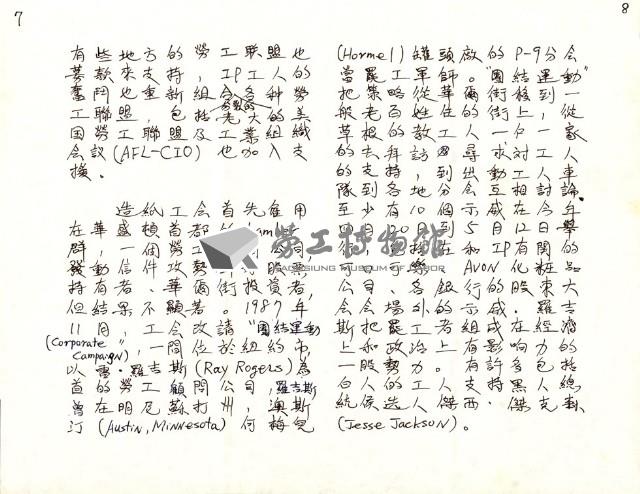 7
有些地方的勞工联盟也
募款來支持，IP工人的
奮鬥也重新組合各种勞
工聯盟，包括老大的美
国勞工聯盟及工業組織
会議(AFL-CIO)也加入支
援。
造紙工会首先雇用
在華盛頓首都的
群，一個勞工公司，
發動信件攻勢股票
持有者、華爾街投資者，
但結果不顯著。1987年
11月，工会改請"团結運動
(Corporate Campaign)"，一間位於紐約市，
以雷·羅吉斯(Ray Rogers)為
首的勞工顧問公司，羅吉斯
曾在明尼蘇打州，澳斯
汀(Austin, Minnesota)何梅兒
8
(Hormel)罐頭廠的P-9分会
當罷工軍師。"团結運動"
把策略從華爾街移到一
般老百姓住的街上，從
草根的教工人一个一家
的去拜訪、尋求对工人
的支持，到出動工人車
隊到各地分会互相討論。
至少有10個示威在今年
4月20日到5月12日舉
行，包括在和IP有關的
公司、AVON化粧品
公司、各銀行的股東大
会会場外的示威。羅吉
斯把罷工者組成在經濟
上和政治上有影响力的
一股勢力。有許多包括
白人的工人支持黑人總
統侯选人傑西·傑克遜
(Jesse Jackson)。
勞工博物館
KAOHSIUNG MUSEUM OF LABOR